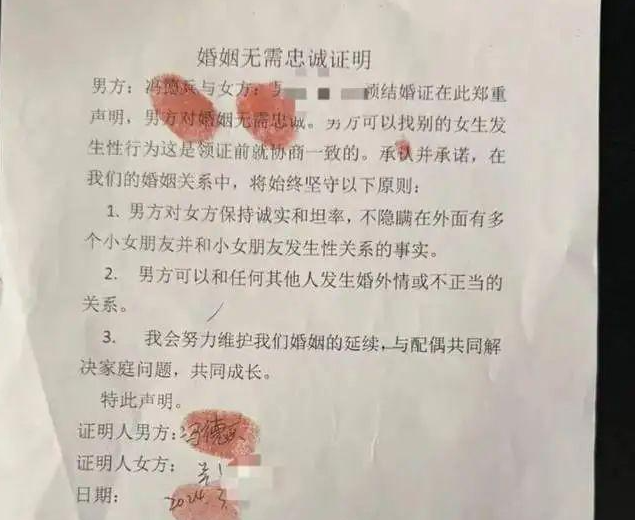 婚姻无需忠诚证明
男方：冯德兵与女方： 领结婚证在此郑重
声明，男方对婚姻无需忠诚。男方可以找别的女生发
生性行为这是领证前就协商一致的。承认并承诺，在
我们的婚姻关系中，将始终坚守以下原则：
1. 男方对女方保持诚实和坦率，不隐瞒在外面有多
个小女朋友并和小女朋友发生性关系的事实。
2. 男方可以和任何其他人发生婚外情或不正当的
关系。
3. 我会努力维护我们婚姻的延续，与配偶共同解
决家庭问题，共同成长。
特此声明。
证明人男方：冯德兵
证明人女方：
日期： 2024.